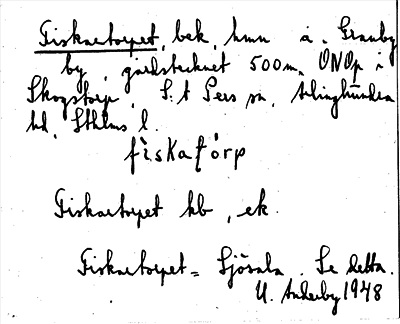 Fiskartorpet, bek, hmn å. Granby
by, gårdstecknet 500 m. ONO p i
Skogstorp, S:t Pers sn, Ärlinghundra
hd, Sthlms l.
fiskatorp
Fiskartorpet kb, ek.
Fiskartorpet = Sjösala. Se detta.
U. Anderby 1948